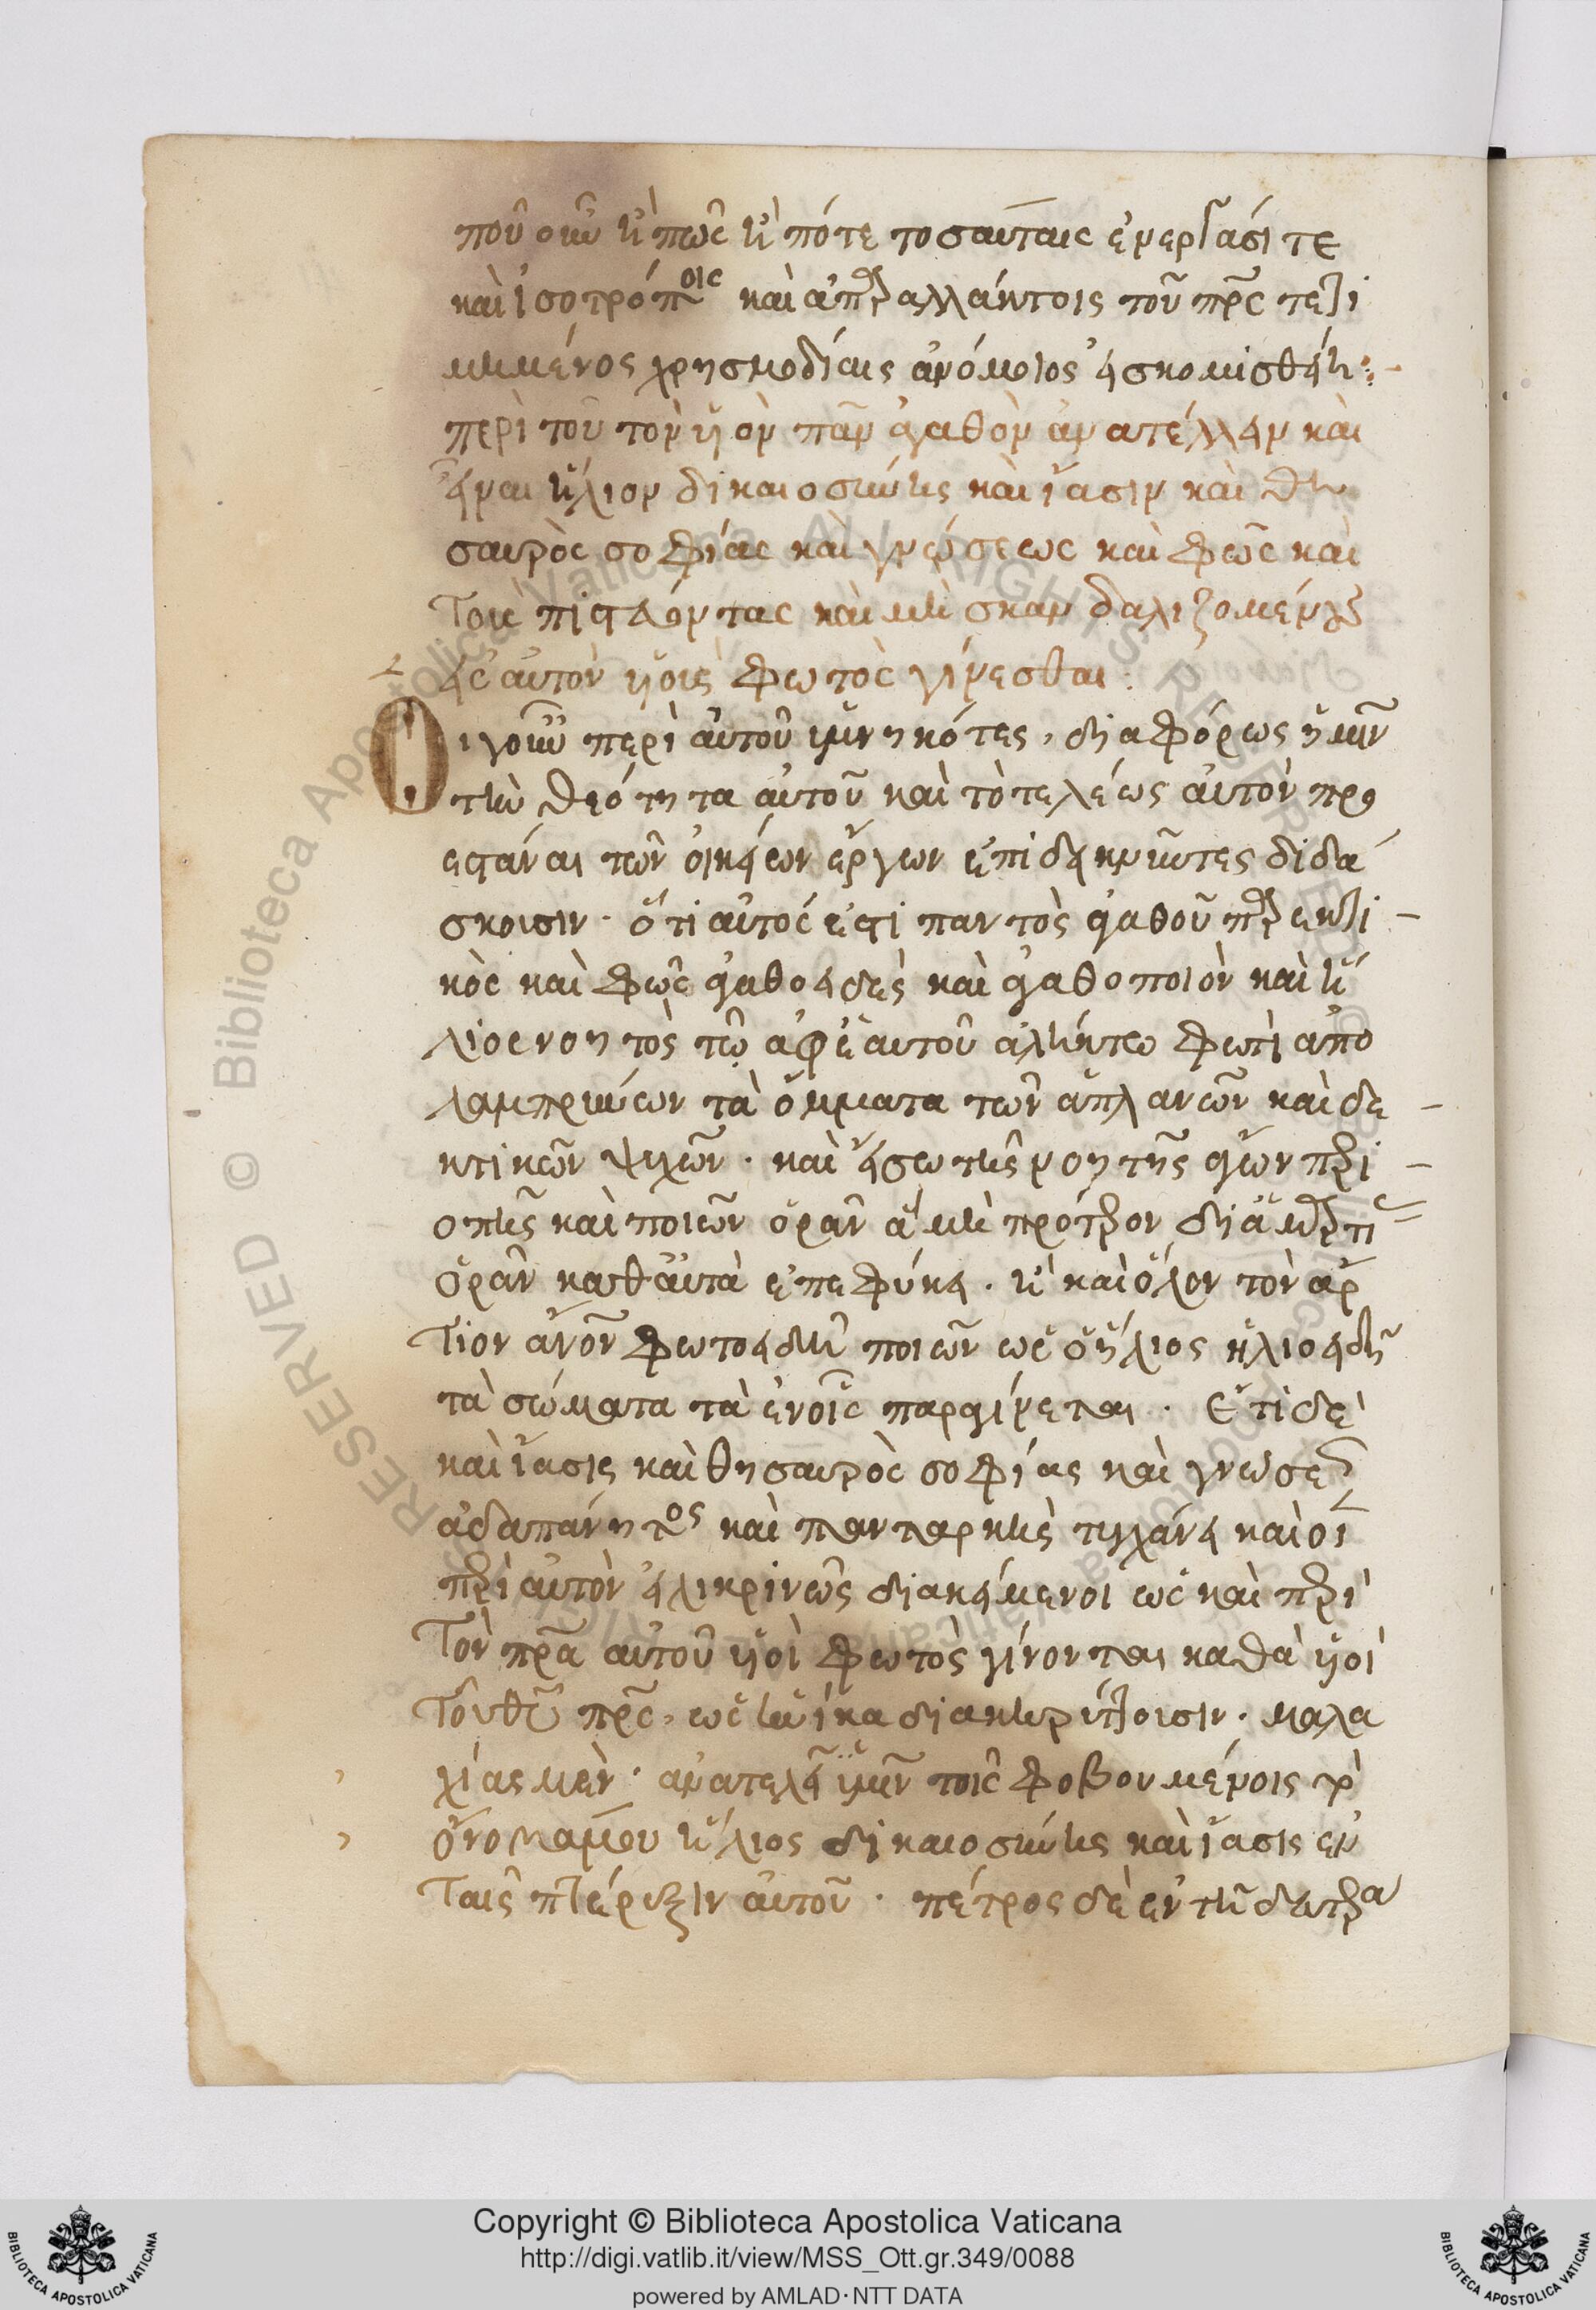 ποῦ οὖν ἢ πῶς ἢ πότε τοσαύταις ἐνεργίαις τε
καὶ ἰσοτρόποις καὶ ἀπαραλλάκτοις τοῦ πρς τετι
μημένος χρησμοδίαις ἀνόμοιος εἰσκομισθείη:
περὶ τοῦ τὸν ὑὸν πᾶν ἀγαθὸν ἀνατέλλειν καὶ
εἶναι ἥλιον δικαιοσύνης καὶ ἴασιν καὶ θη
σαυρὸς σοφίας καὶ γνώσεως καὶ φῶς καὶ
τοὺς πιστεύοντας καὶ μὴ σκανδαλιζομένους
εἰς αὐτὸν υἱοὺς φωτὸς γίνεσθαι:
Οἱ γοῦν περὶ αὐτοῦ ὑμνηκότες, διαφόρως ἡμῖν
τὴν θεότητα αὐτοῦ καὶ τὸ τελέως αὐτὸν προ
εστάναι τῶν οἰκείων ἔργων ἐπιδεικνῦντες διδά
σκουσιν· ὅτι αὐτός ἐστι παντὸς ἀγαθοῦ παρεκτι
κὸς καὶ φῶς ἀγαθοειδὲς καὶ ἀγαθοποιὸν καὶ ἥ
λιος νοητὸς τῶ ἀφ' ἑαυτοῦ ἀλήκτω φωτὶ ἀπο
λαμπρύνων τὰ ὄμματα τῶν ἀπλανῶν καὶ δε
κτικῶν ψυχῶν· καὶ εἴσω τῆς νοητῆς ἄγων περι
οπῆς καὶ ποιῶν ὁρᾶν ἃ μὴ πρότερον δι' ἁμαρτί
ὁρᾶν καθ' αὑτὰ ἐπεφύκει· ἢ καὶ ὅλον τὸν ἄρ
τιον ἄνον φωτοειδῆ ποιῶν ὡς ὁ ἥλιος ἡλιοειδῆ
τὰ σώματα τὰ ἐν οἷς παραγίνεται· Ἔτι δὲ
καὶ ἴασις καὶ θησαυρὸς σοφίας καὶ γνώσεως
ἀδαπάνητος καὶ πανταρκὴς τυγχάνει καὶ οἱ
περὶ αὐτὸν εἰλικρινῶς διακείμενοι ὡς καὶ περὶ
τὸν πρα αὐτοῦ υἱοὶ φωτὸς γίνονται καθὰ υἱοὶ
τοῦ θυ πρς, ὡς ἡνίκα διακηρύττουσιν· μαλα
χίας μὲν· ἀνατελεῖ ὑμῖν τοῖς φοβουμένοις τὸ
ὄνομά μου ἥλιος δικαιοσύνης καὶ ἴασις ἐν
ταῖς πτέρυξιν αὐτοῦ· πέτρος δὲ ἐν τῆ δευτέρα
Copyright © Biblioteca Apostolica Vaticana
http://digi.vatlib.it/view/MSS_Ott.gr.349/0088
powered by AMLAD·NTT DATA